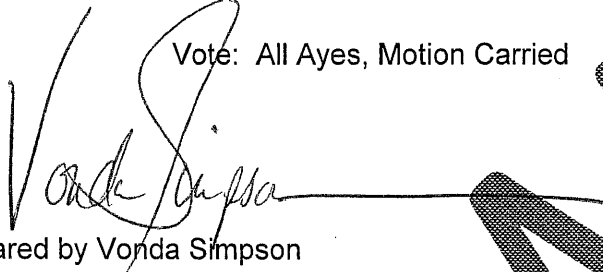 Vote: All Ayes, Motion Carried
Vonda Simpson
ared by Vonda Simpson